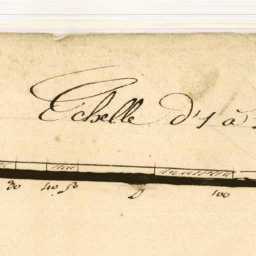 Echelle d'1 à
30 40 50 100